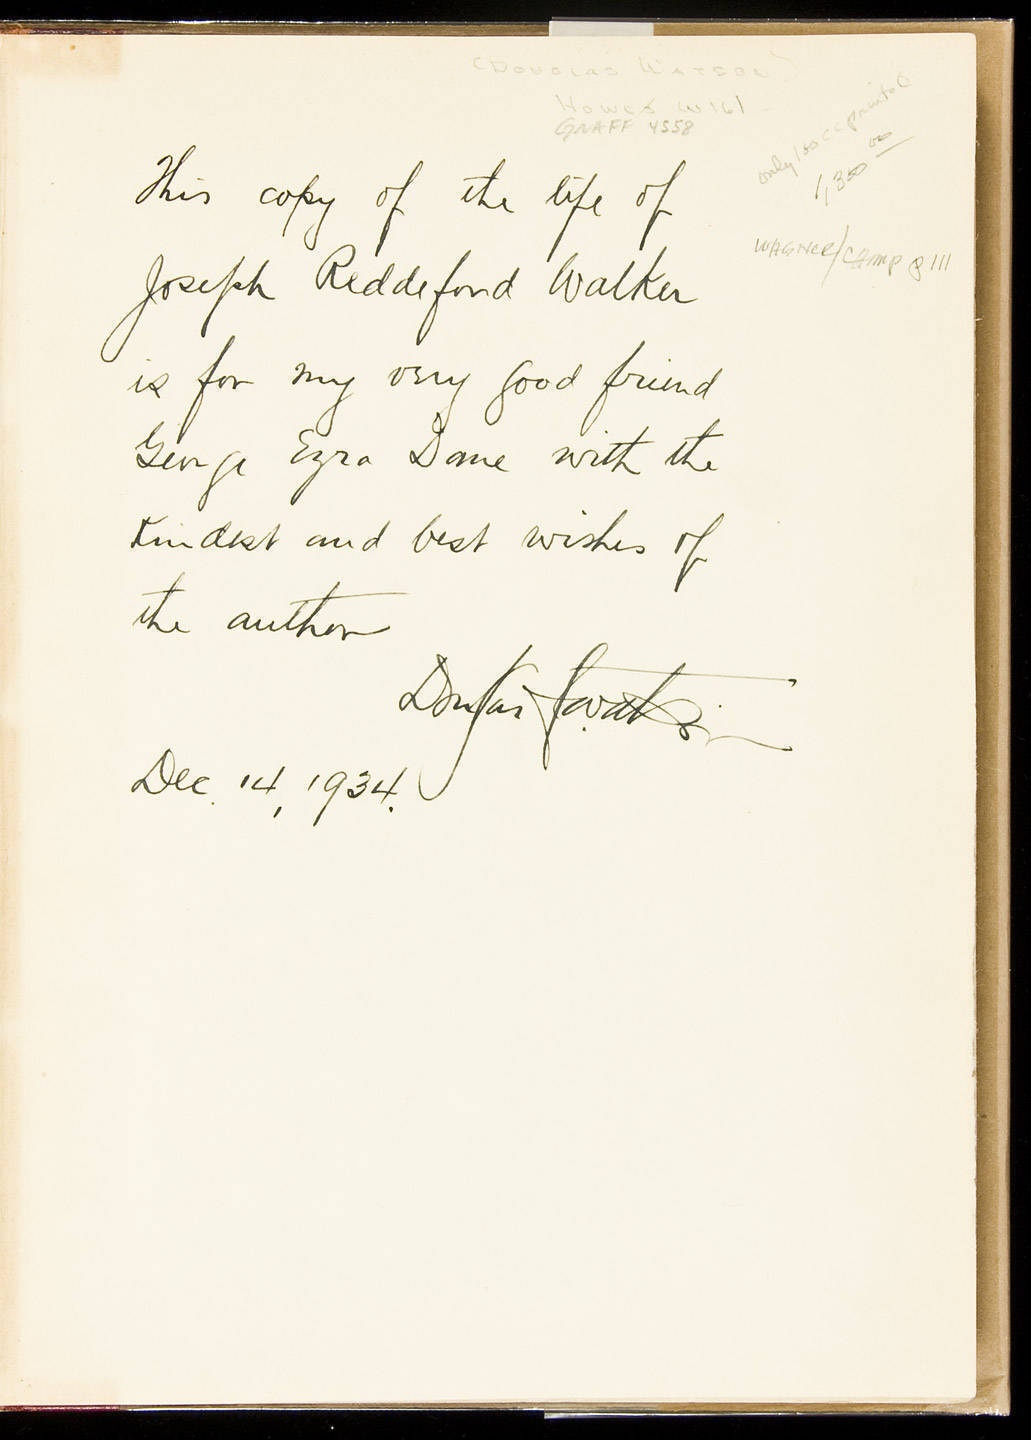 (Douglas Watson)
Howes W161
GRAFF 4558
only 100 cc printed
1,350.00
WAGNER/CAMP 8 111
This copy of the life of
Joseph Reddeford Walker
is for my very good friend
George Ezra Dane with the
kindest and best wishes of
the author
Douglas S Watson
Dec. 14, 1934.